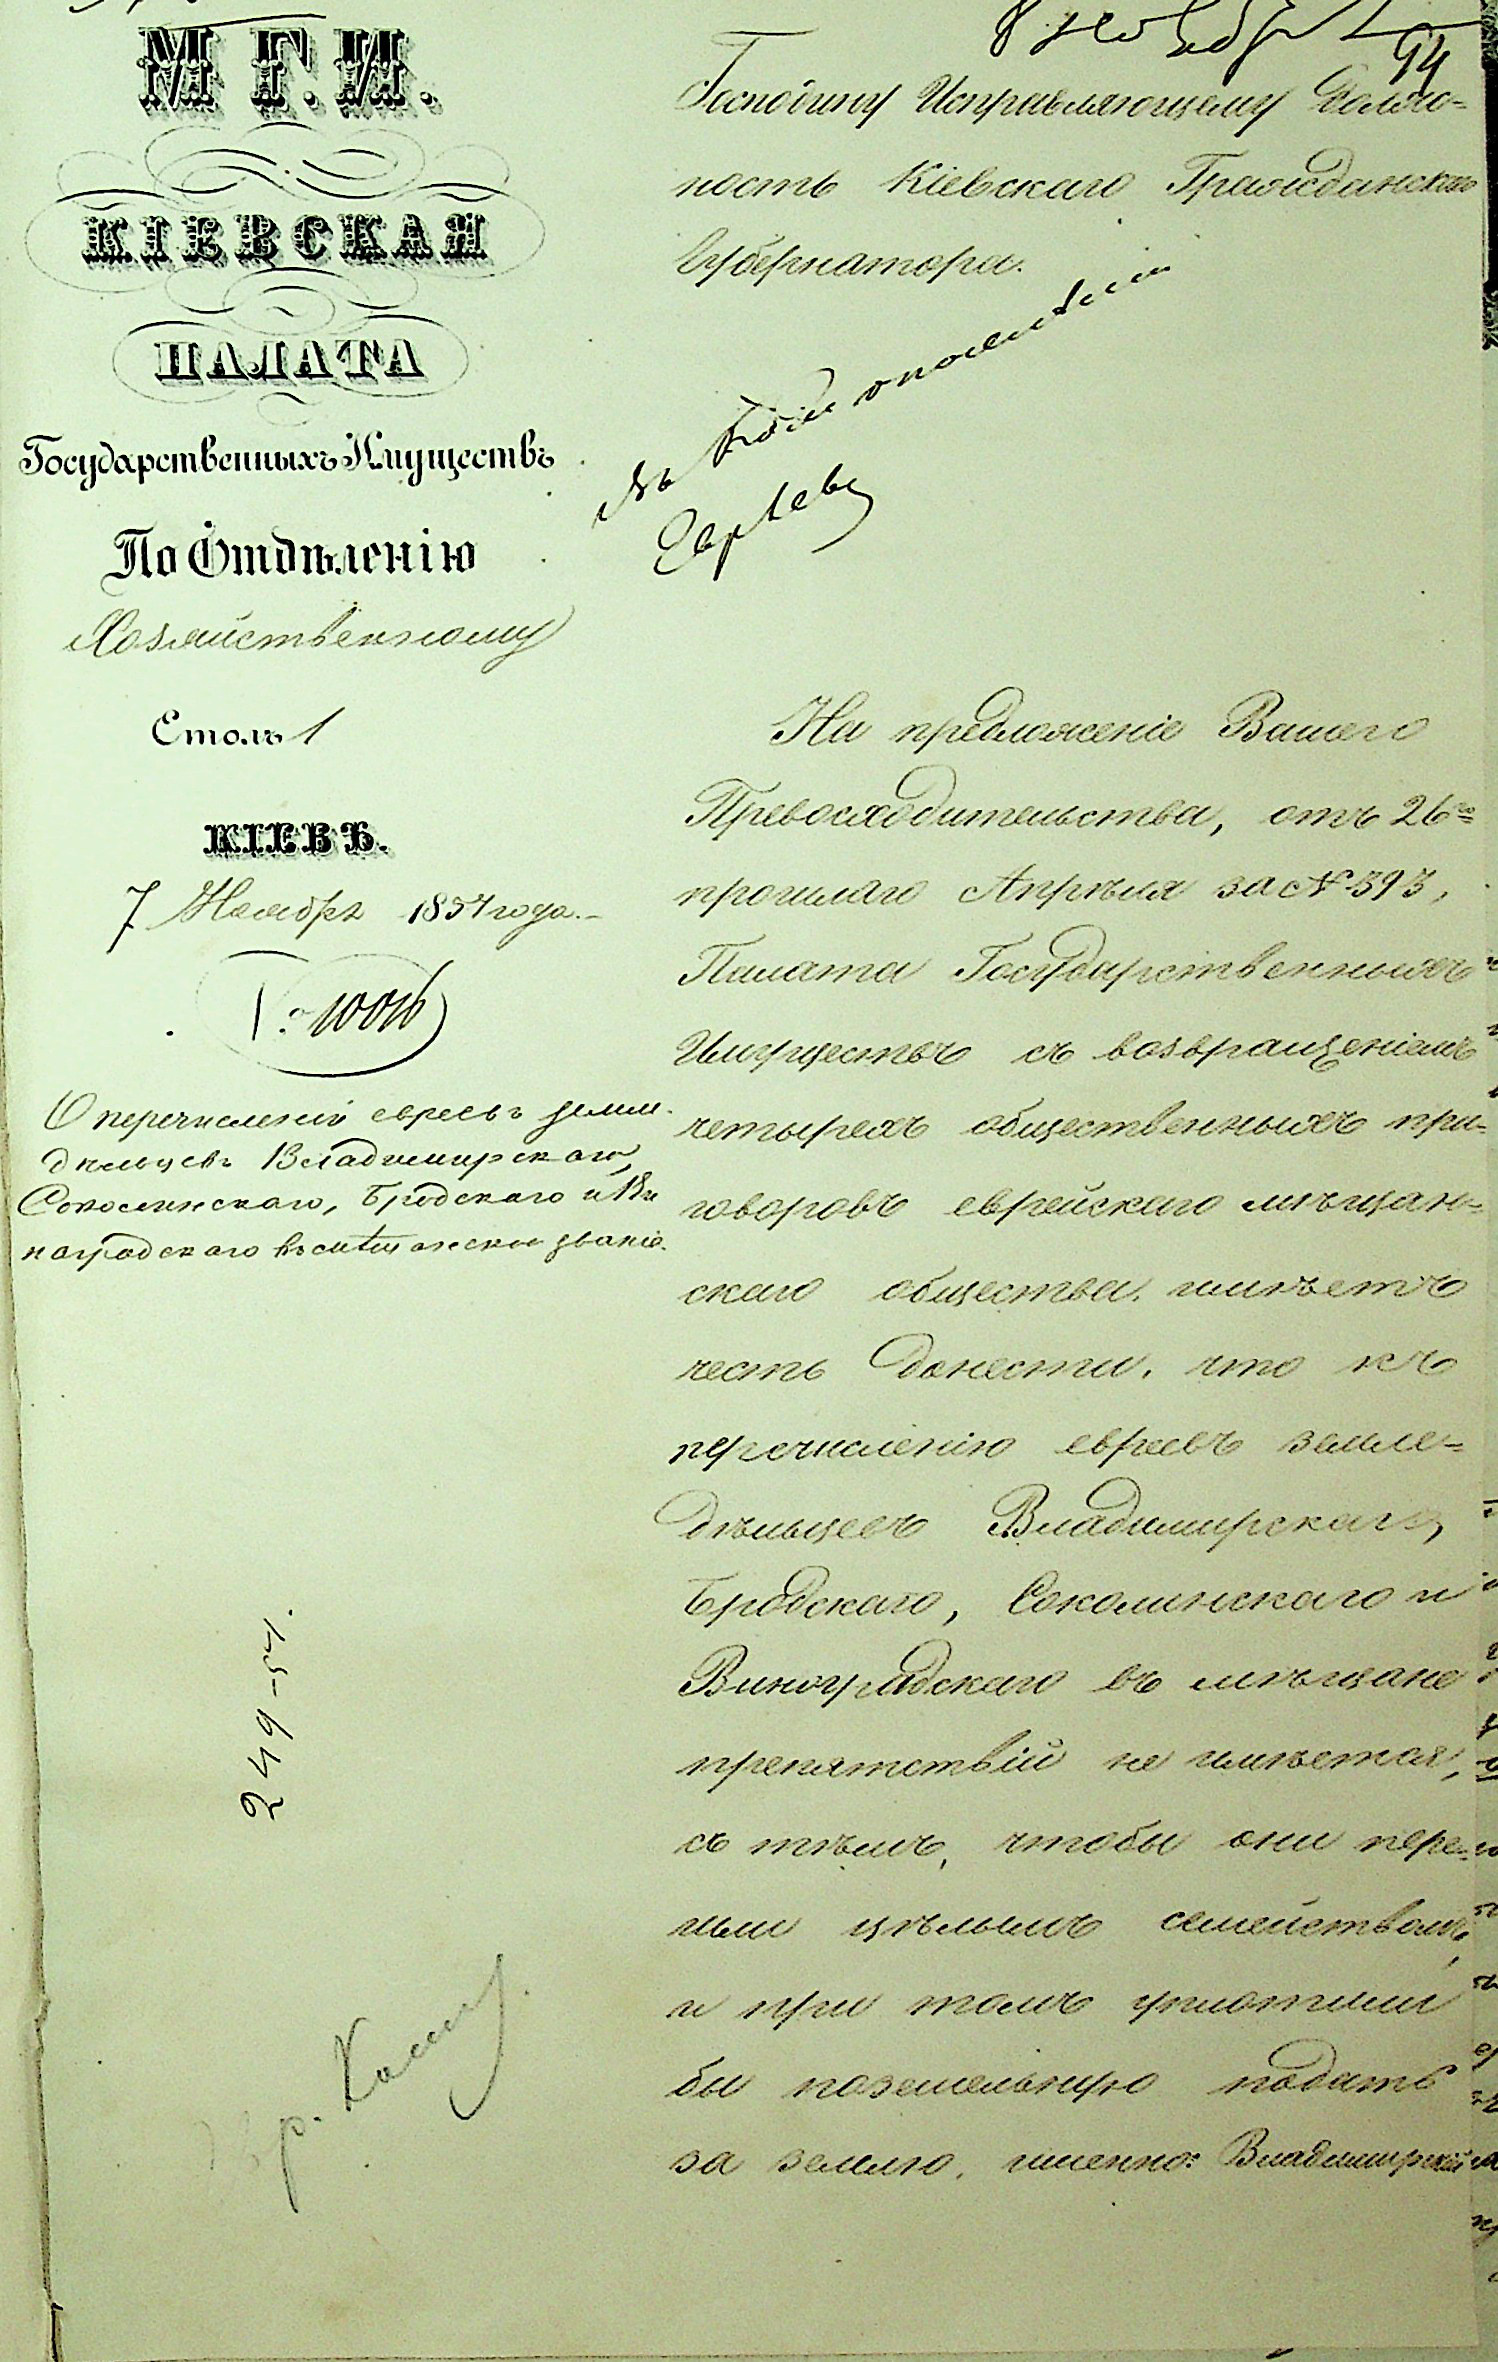 М. Г. И.
КІЕВСКАЯ
ПАЛАТА
Государственныхъ Имуществъ
По Отдѣленію
Хозяйственному
Столъ 1
КІЕВЪ.
7 Ноября 1857 года.
О перечисленіи евреевъ земле-
дѣльцевъ Владимирскаго,
Соколинскаго, Бродскаго и Ви
ноградскаго въ мѣщанское званіе.
249-57.
94
Господину Исправляющему Долж-
ность Кіевскаго Гражданскаго
Губернатора.
На предложеніе Вашего
Превосходительства, отъ 26го
прошлаго Апрѣля за № 593,
Палата Государственныхъ
Имуществъ съ возвращеніемъ
четырехъ общественныхъ при-
говоровъ еврейскаго мѣщан-
скаго общества, имѣетъ
честь донести, что къ
перечисленію евреевъ земле-
дѣльцевъ Владимирскаго,
Бродскаго, Соколинскаго и
Виноградскаго въ мѣщане
препятствій не имѣется,
съ тѣмъ, чтобы они пере-
шли цѣлымъ семействомъ,
и при томъ уплотили
бы поземельную подать
за землю, именно: Владимирскій